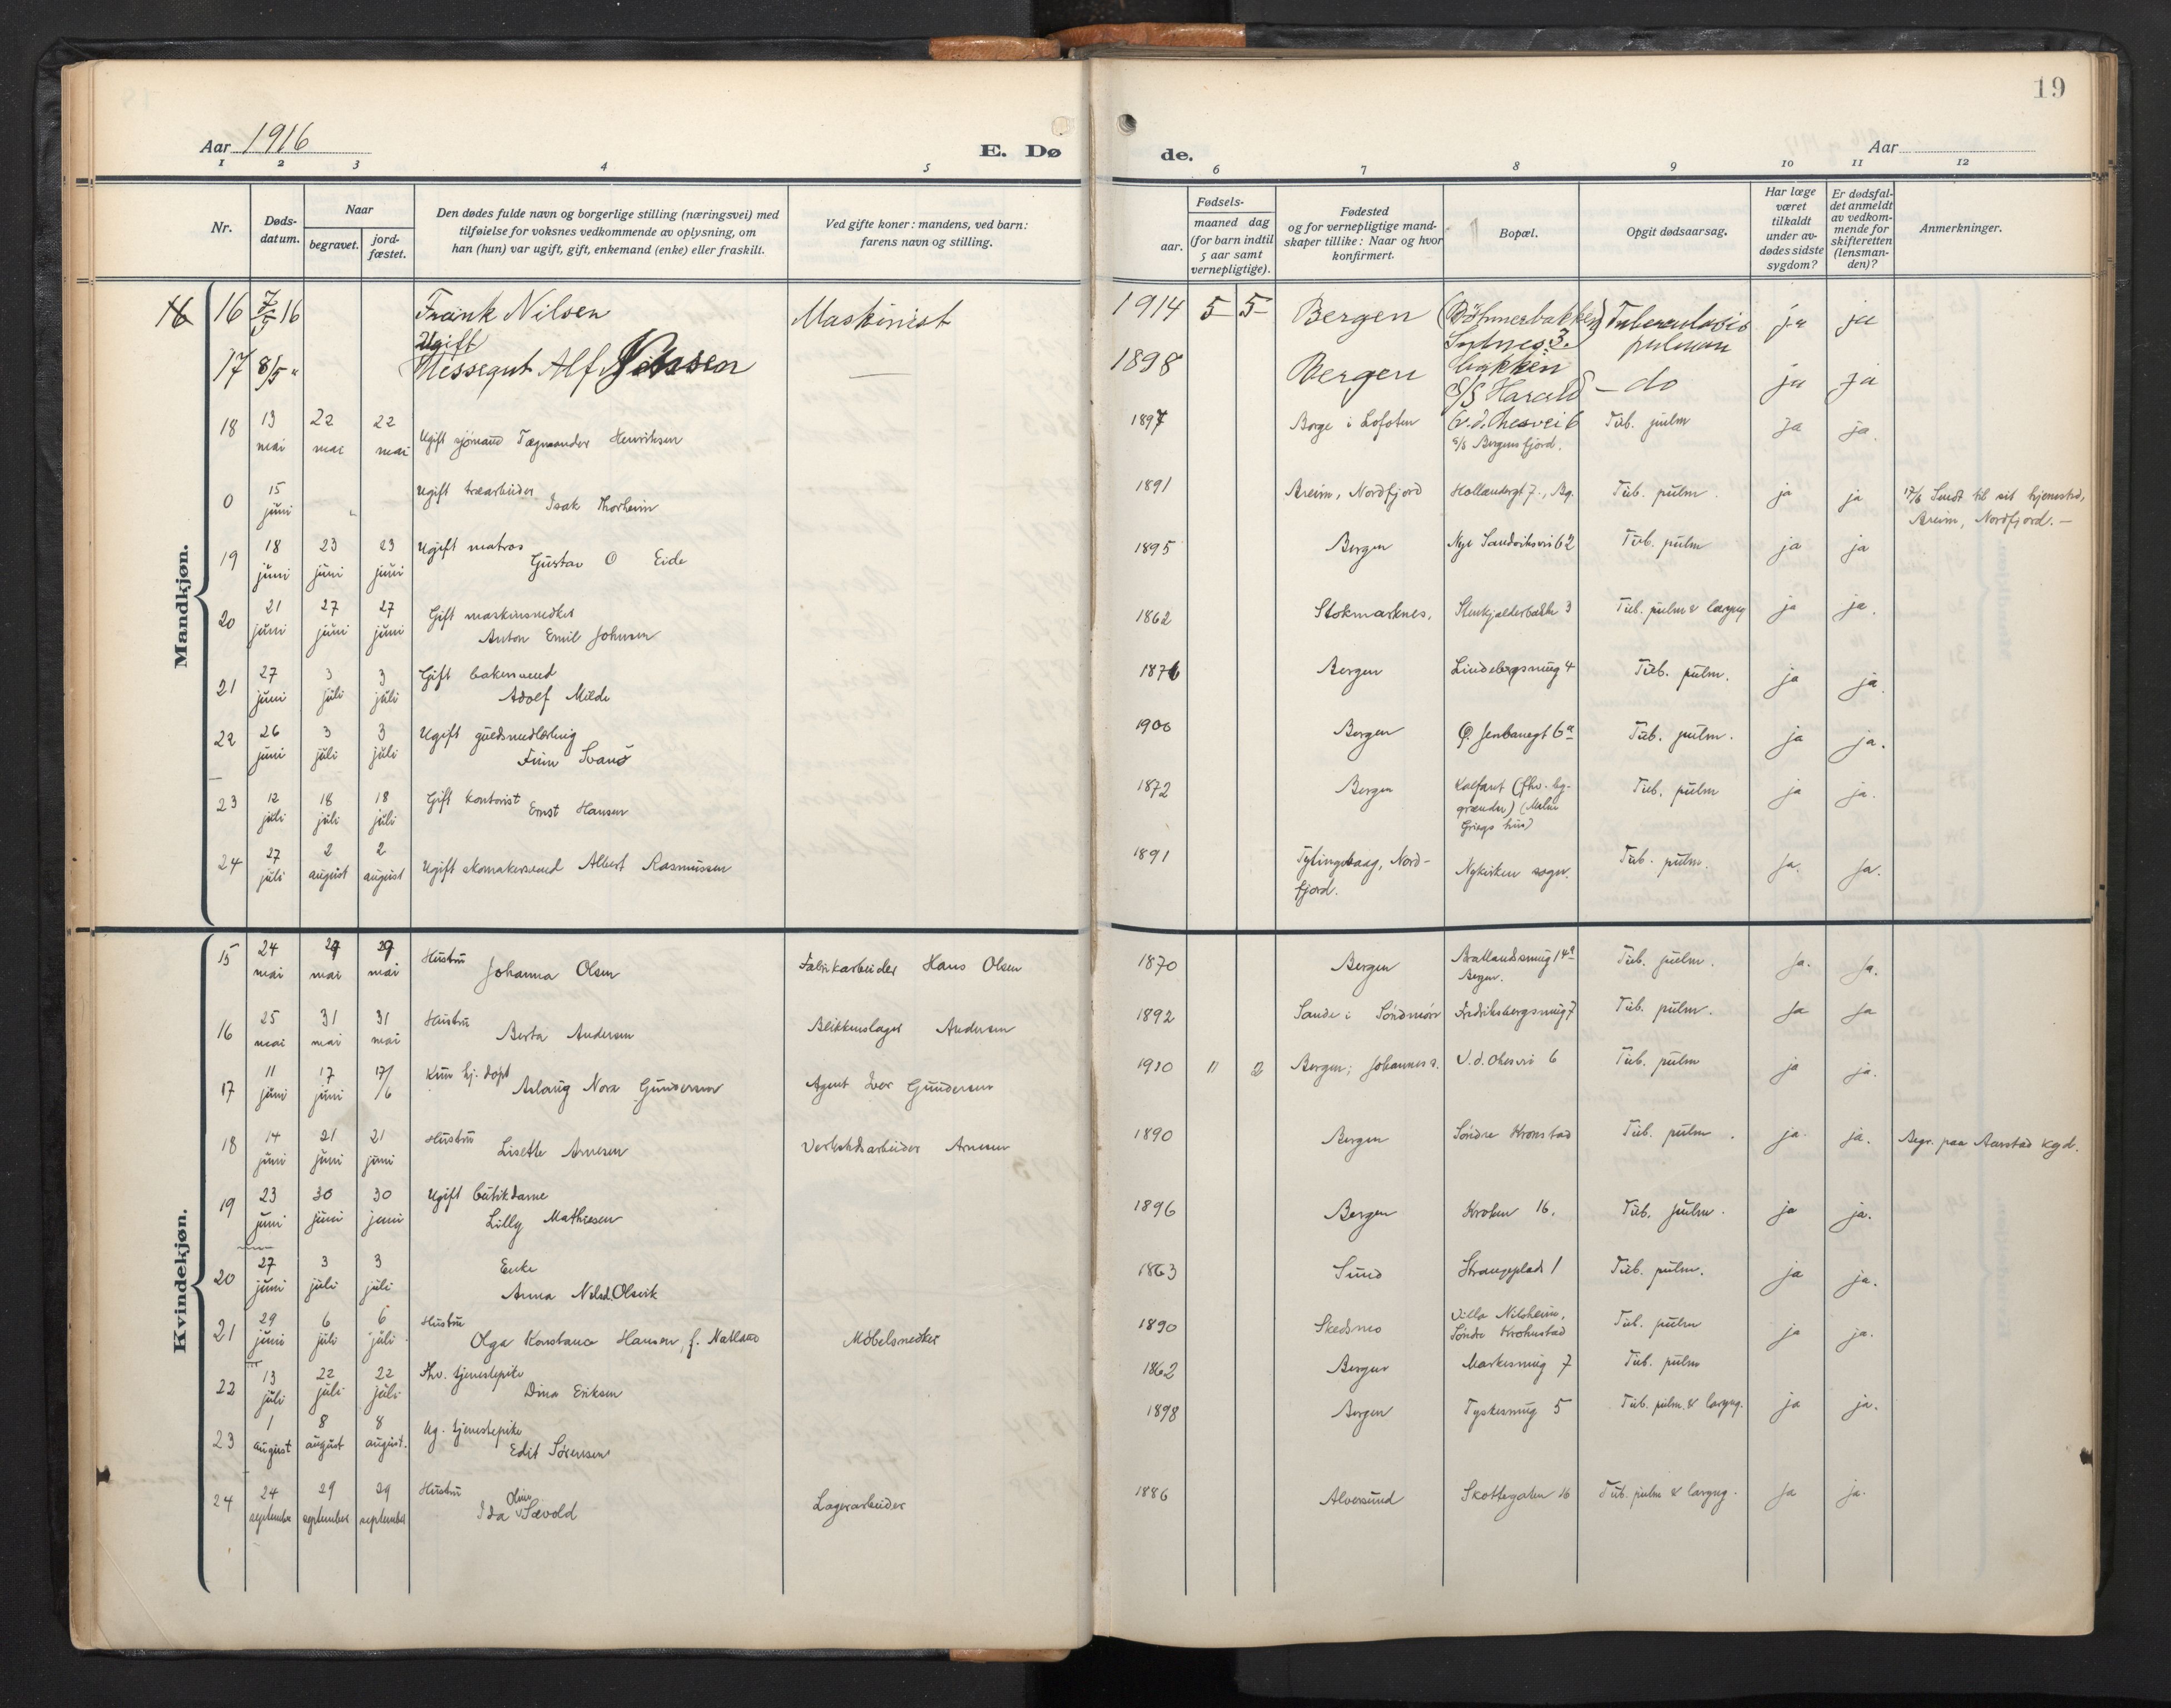 19
Aar 1916
E. Dø
de.
Aar
1 2 3 4 5 6 7 8 9 10 11 12
Nr.
Døds-
datum.
Naar
begravet.
jord-
fæstet.
Den dødes fulde navn og borgerlige stilling (næringsvei) med
tilføielse for voksnes vedkommende av oplysning, om
han (hun) var ugift, gift, enkemand (enke) eller fraskilt.
Ved gifte koner: mandens, ved barn:
farens navn og stilling.
aar.
Fødsels-
maaned dag
(for barn indtil
5 aar samt
vernepligtige).
Fødested
og for vernepligtige mand-
skaper tillike: Naar og hvor
konfirmert.
Bopæl.
Opgit dødsaarsag.
Har læge
været
tilkaldt
under av-
dødes sidste
sygdom?
Er dødsfal-
det anmeldt
av vedkom-
mende for
skifteretten
(lensman-
den)?
Anmerkninger.
Mandkjøn.
16 16 7/5 16 Frank Nilsen Maskinist 1914 5 5 Bergen Tuberculosis ja ja
Sydnes 3. pulmon
Ugift
17 8/5 " Messegut Alf Nilssen — 1898 Bergen S/S Harald — do ja ja
18 13 mai 22 mai 22 mai Ugift sjømand Henriksen 1897 Borge i Lofoten V. d. Ohesvei 6 Tub. pulm ja ja.
S/S Bergensfjord.
0 15 juni Ugift træarbeider Isak Thorheim 1891 Breim, Nordfjord Hollendergt 7., Bg. Tub. pulm. ja ja 17/6 Sendt til sit hjemsted,
Breim, Nordfjord. —
19 18 juni 23 juni 23 juni Ugift matros Gustav O Eide 1895 Bergen Nye Sandviksvei 62 Tub. pulm ja ja
20 21 juni 27 juni 27 juni Gift maskinsnedker Anton Emil Johnsen 1862 Stokmarknes. Stenkjelderbakk 3 Tub. pulm & laryng ja ja.
21 27 juni 3 juli 3 juli Gift bakersvend Adolf Milde 1876 Bergen Lindebergsmug 4 Tub. pulm. ja ja.
22 26 juni 3 juli 3 juli Ugift guldsmedlærling Finn 1900 Bergen Ø. Jenbanegt 6a Tub. pulm. ja ja.
23 12 juli 18 juli 18 juli Gift kontorist Ernst Hansen 1872 Bergen Kalfaret Tub. pulm ja ja.
Griegs hus)
24 27 juli 2 august 2 august Ugift skomakersvend Albert Rasmussen 1891 Nord- Nykirken sogn. Tub. pulm. ja. ja.
fjord.
Kvindekjøn.
15 24 mai 29 mai 29 mai Hustru Johanna Olsen Fabrikarbeider Hans Olsen 1870 Bergen Bratlandsmug 14a Tub. pulm. ja. ja.
Bergen.
16 25 mai 31 mai 31 mai Hustru Berta Andersen Blikkenslager Andersen 1892 Sande i Söndmör Fredriksbergsmug 7 Tub. pulm. ja ja
17 11 juni 17 juni 17/6 Kun hj. döpt Aslaug Nora Gundersen Agent Iver Gundersen 1910 11 2 Bergen; Johannes s. V. d. Ohesvei 6 Tub. pulm ja ja.
18 14 juni 21 juni 21 juni Hustru Lisette Arnesen Verkstedsarbeider Arnesen 1890 Bergen Söndre Kronstad Tub. pulm. ja. ja. Begr. paa Aarstad kgd.
19 23 juni 30 juni 30 juni Ugift butikdame Lilly Mathiesen 1896 Bergen Kroken 16. Tub. pulm. ja ja.
20 27 juni 3 juli 3 juli Enke Anna Nilsd. Olsvik 1863 Sund Strangeplads 1 Tub. pulm. ja ja.
21 29 juni 6 juli 6 juli Hustru Olga Konstance Hansen, f. Natland Möbelsnedker 1890 Skedsmo Villa Nilsheim, Tub. pulm ja ja.
Söndre Krohnstad
22 13 juli 22 juli 22 juli Fhv. tjenestepike Dina Eriksen 1862 Bergen Markesmug 7 Tub. pulm
23 1 august 8 august 8 august. Ug. tjenestepike Edit Sörensen 1898 Bergen Tyskesmug 5 Tub. pulm. & laryng. ja ja.
24 24 september 29 september 29 september Hustru Ida Oline Sævold Lagerarbeider 1886 Alversund Skottegaten 16 Tub. pulm & laryng. ja ja.